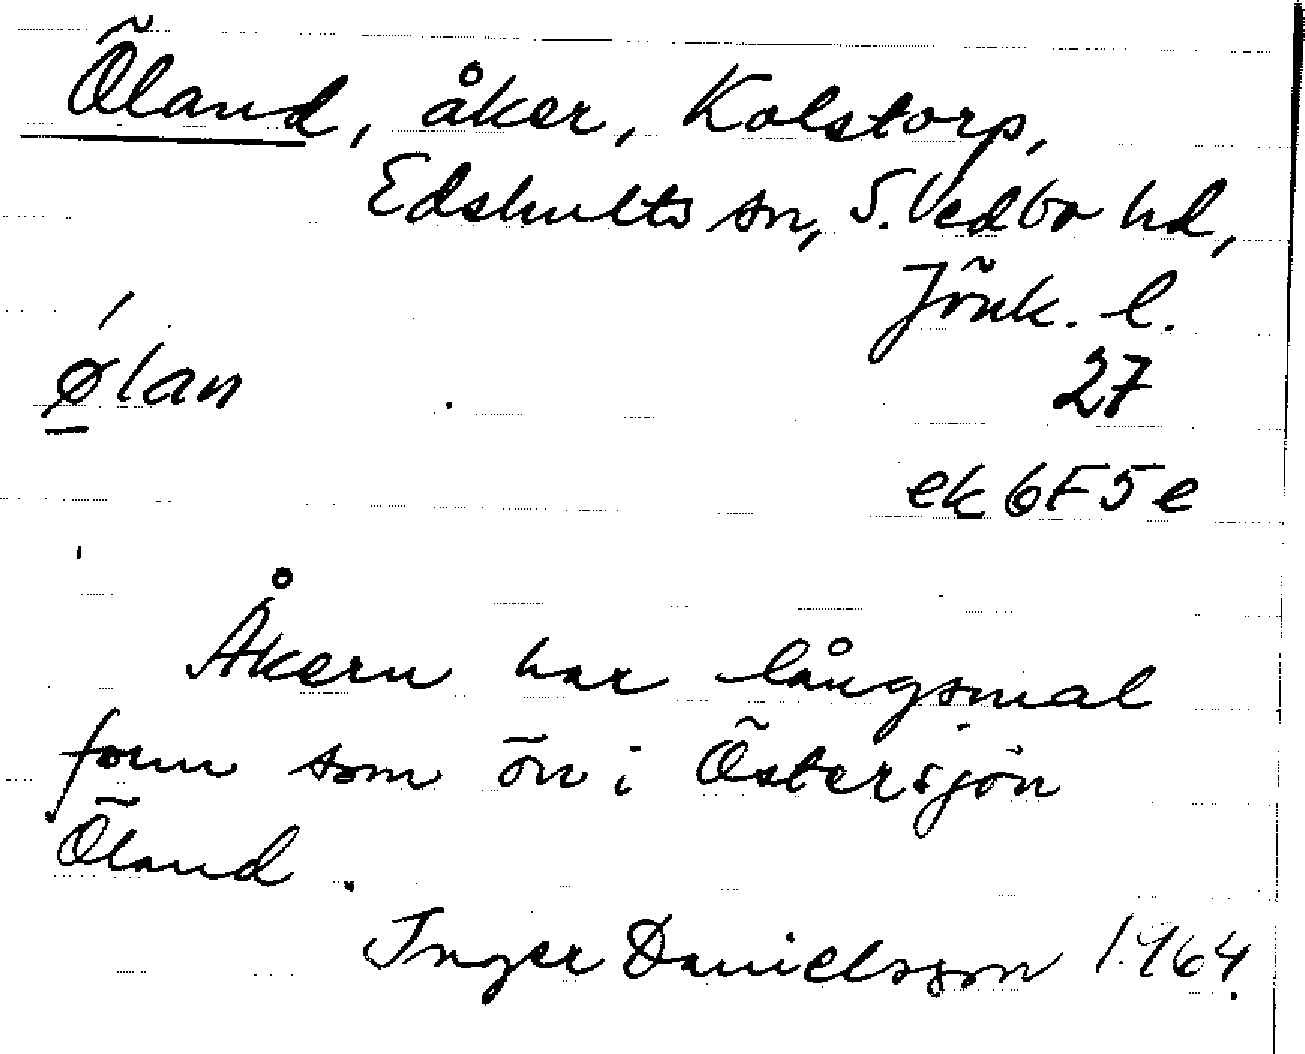 Öland, åker, Kolstorp,
Edshults sn, S. Vedbo hd,
Jönk. l.
ølan
27
ek 6F5e
Åkern har långsmal
form som ön i Östersjön
Öland.
Inger Danielsson 1964.